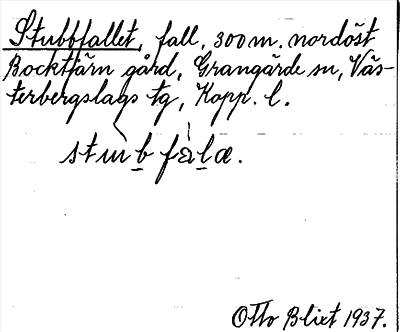 Stubbfallet, fall, 300 m. nordöst
Bocktjärn gård, Grangärde sn, Väs-
terbergslags tg, Kopp. l.
Otto Blixt 1937.